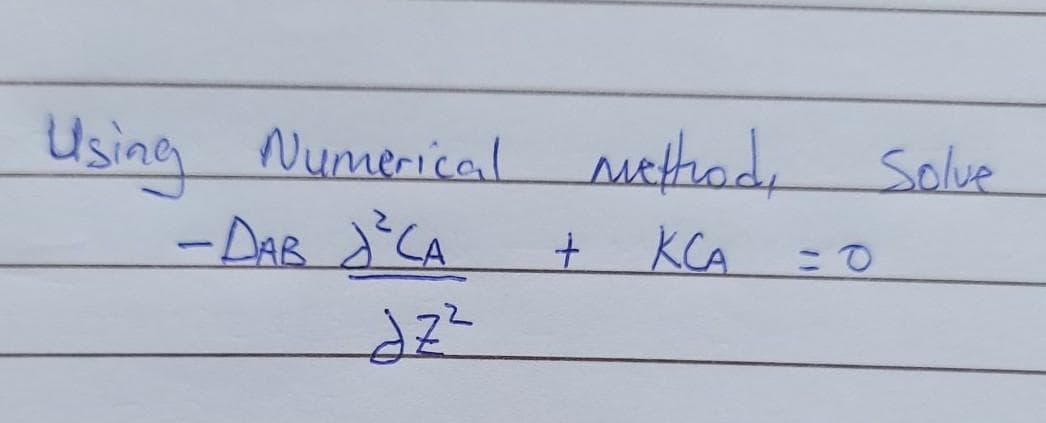 Using Numerical method, Solve
-DAB ∂²CA + KCA = 0
∂Z²